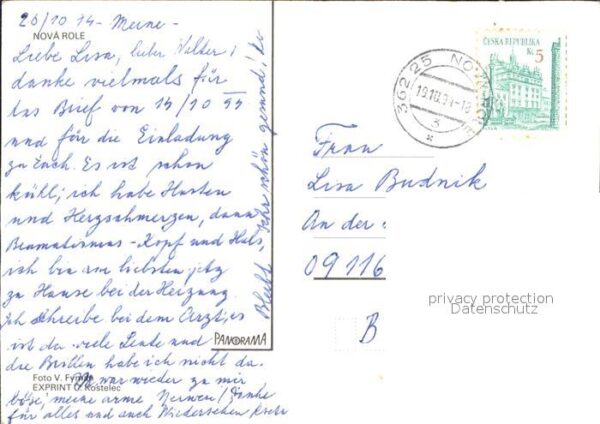 20/10 94 - Meine -
NOVÁ ROLE
Liebe Lisa, lieber Walter!
danke vielmals für
das Brief von 14/10 94
und für die Einladung
zu Euch. Es ist schon
kühl; ich habe Husten
und Herzschmerzen, dann
Reumatismus - Kopf und Hals,
ich bin am liebsten jetzt
zu Hause bei der Heizung.
Ich schreibe bei dem Arzt; es
ist da viele Leute und
die Brillen habe ich nicht da.
war wieder zu mir
böse; meine arme Nerven! Danke
für alles und auch Wiedersehen
Bleibt sehr schön gesund!
Foto V. Fyman
EXPRINT Ú. Kostelec
PANORAMA
ČESKÁ REPUBLIKA
Kč 5
362 25 NOVÁ
19.10.94-18
3
*
Frau
Lisa Budnik
An der
09116
B
privacy protection
Datenschutz